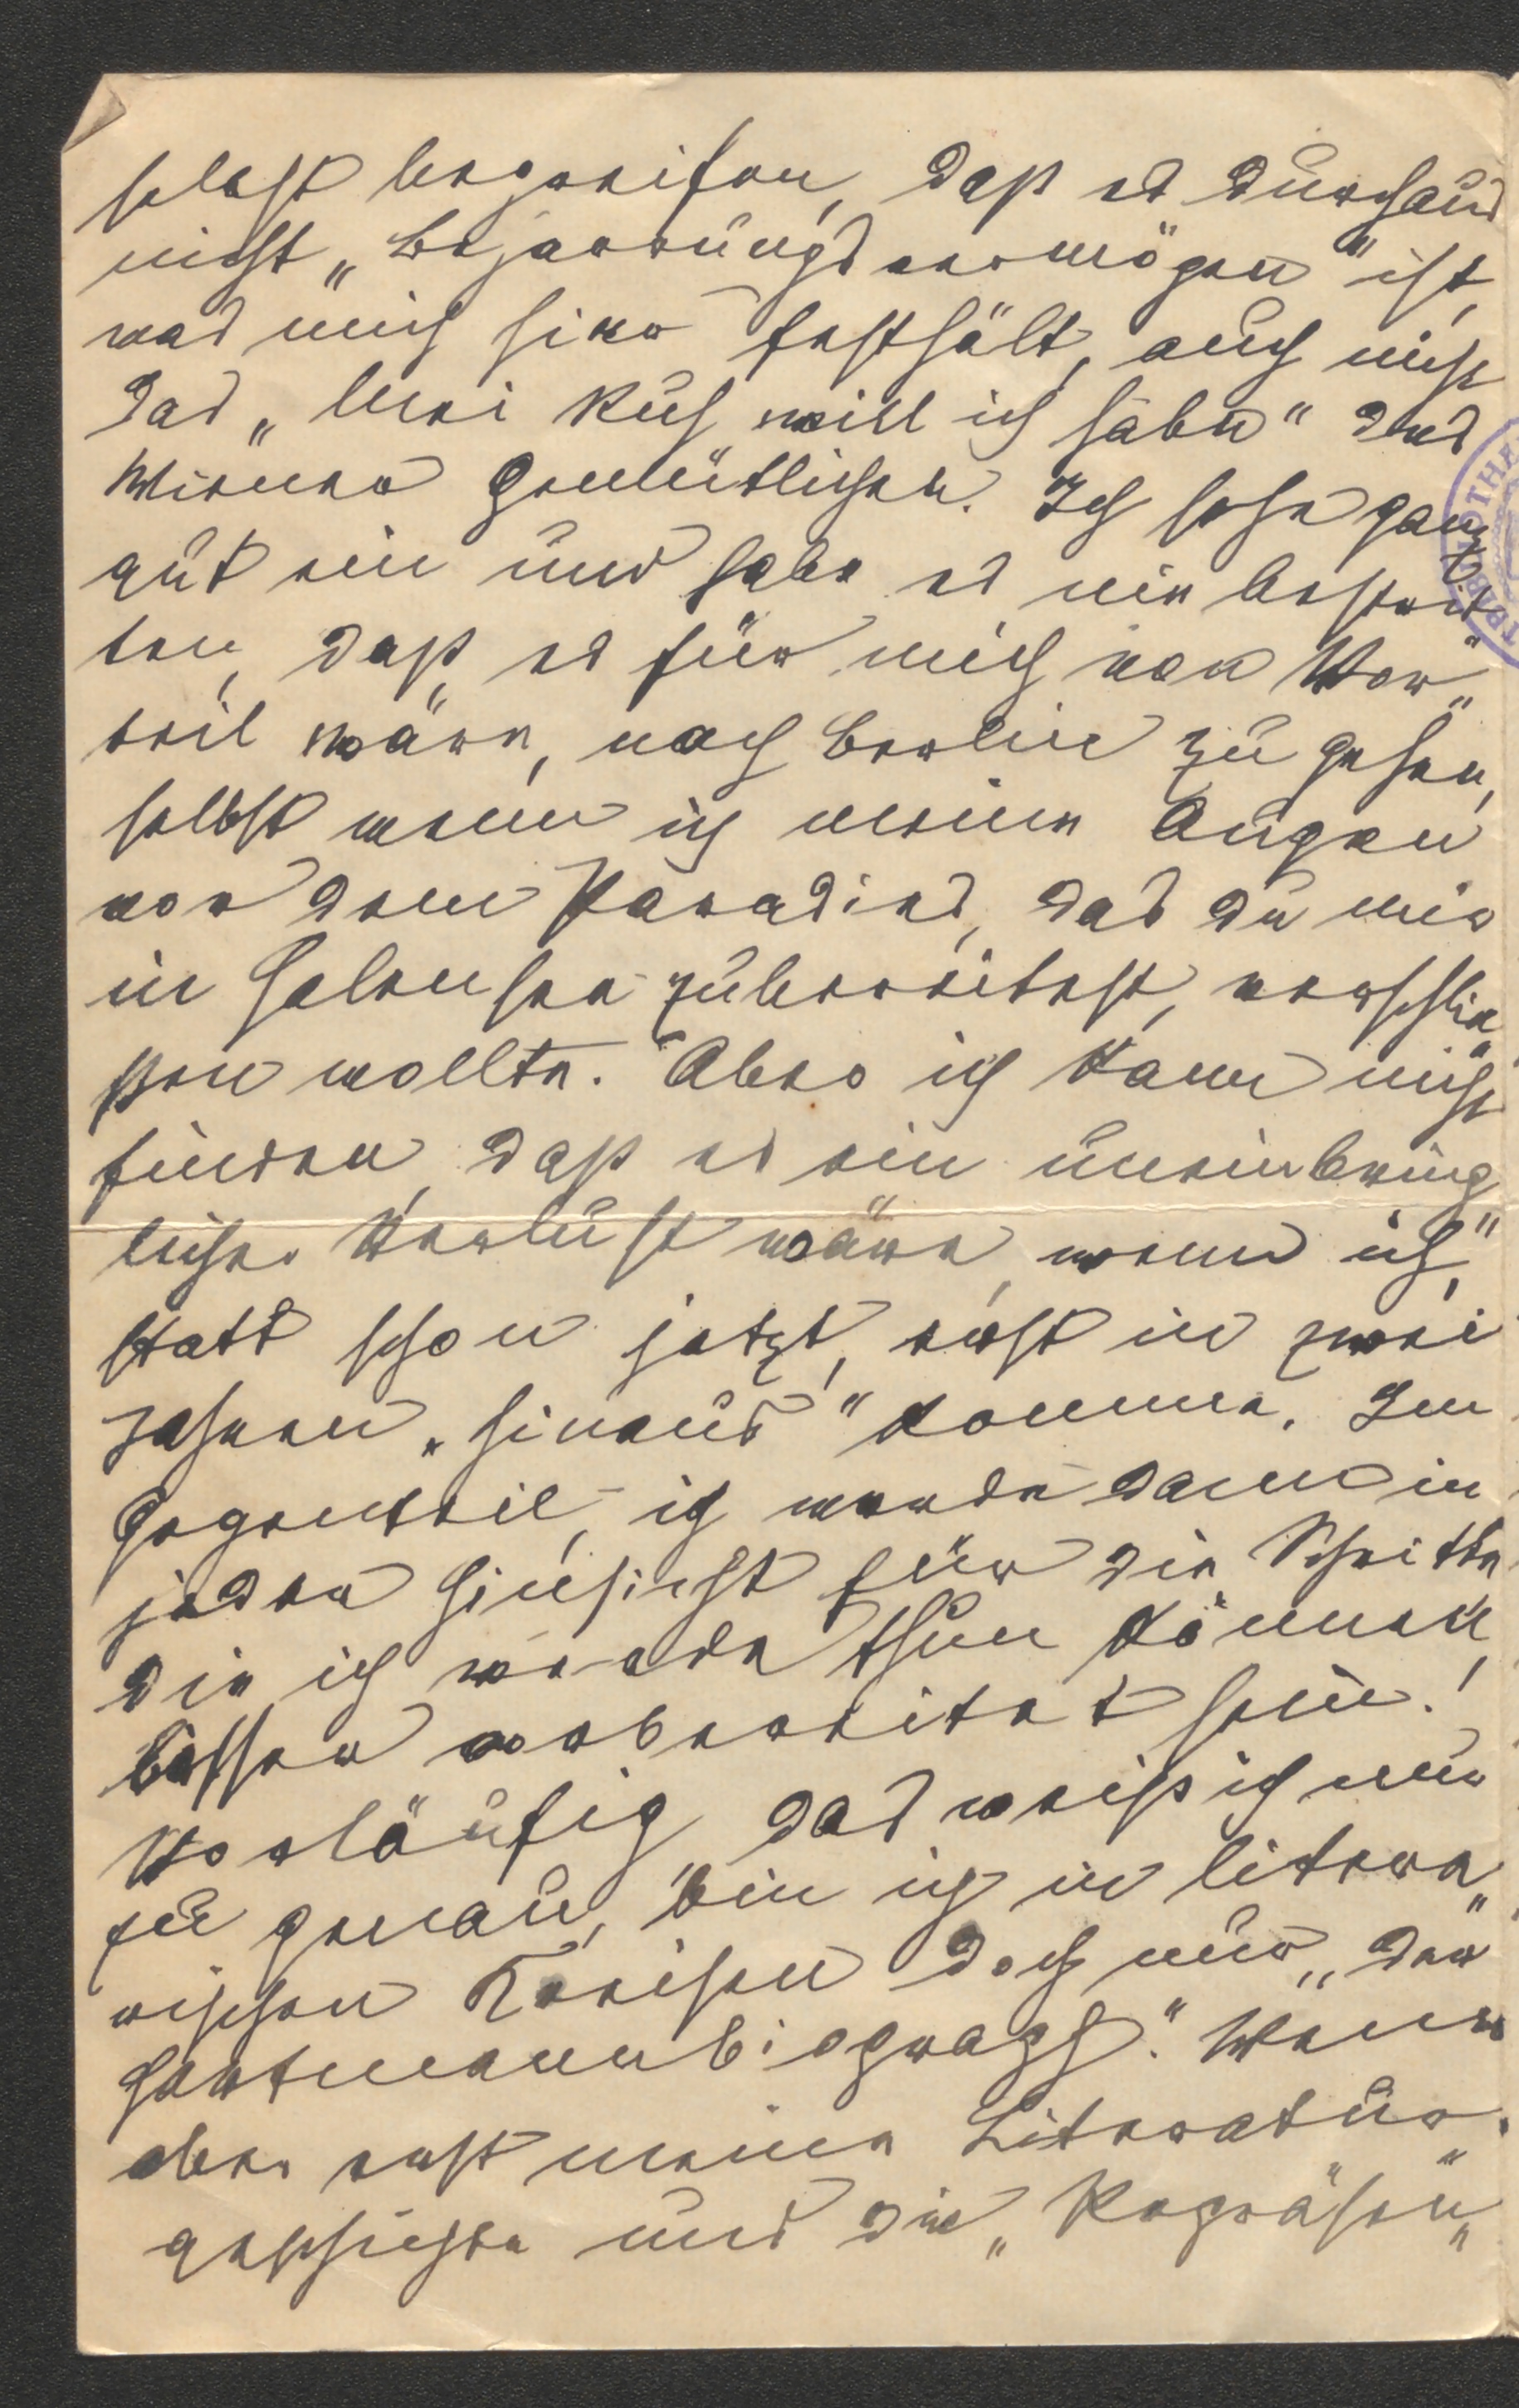 selbst begreifen, daß es durchaus
nicht „Beharrungsvermögen" ist,
was mich hier festhält, auch nicht
das „Mei Ruh will ich habn" des
Wieners Gemütlichen. Ich sehe ganz
gut ein und habe es nie bestrit„
ten, daß es für mich von Vor„
teil wäre, nach Berlin zu gehen,
selbst wenn ich meine Augen
vor dem Paradies, das du mir
in Halensee zubereitest, verschlie„
ßen wollte. Aber ich kann nicht
finden, daß es ein uneinbring„
licher Verlust wäre, wenn ich,
statt schon jetzt, erst in zwei
Jahren „hinaus" komme. Im
Gegenteil, ich werde dann in
jeder Hinsicht für die Schritte
die ich werde thun können,
besser vorbereitet sein!
Vorläufig, das weiß ich nur
zu genau, bin ich in litera„
rischen Kreisen doch nur „der
Hartmannbiograph." Wenn
aber erst meine Literatur„
geschichte und die „Regräsen„